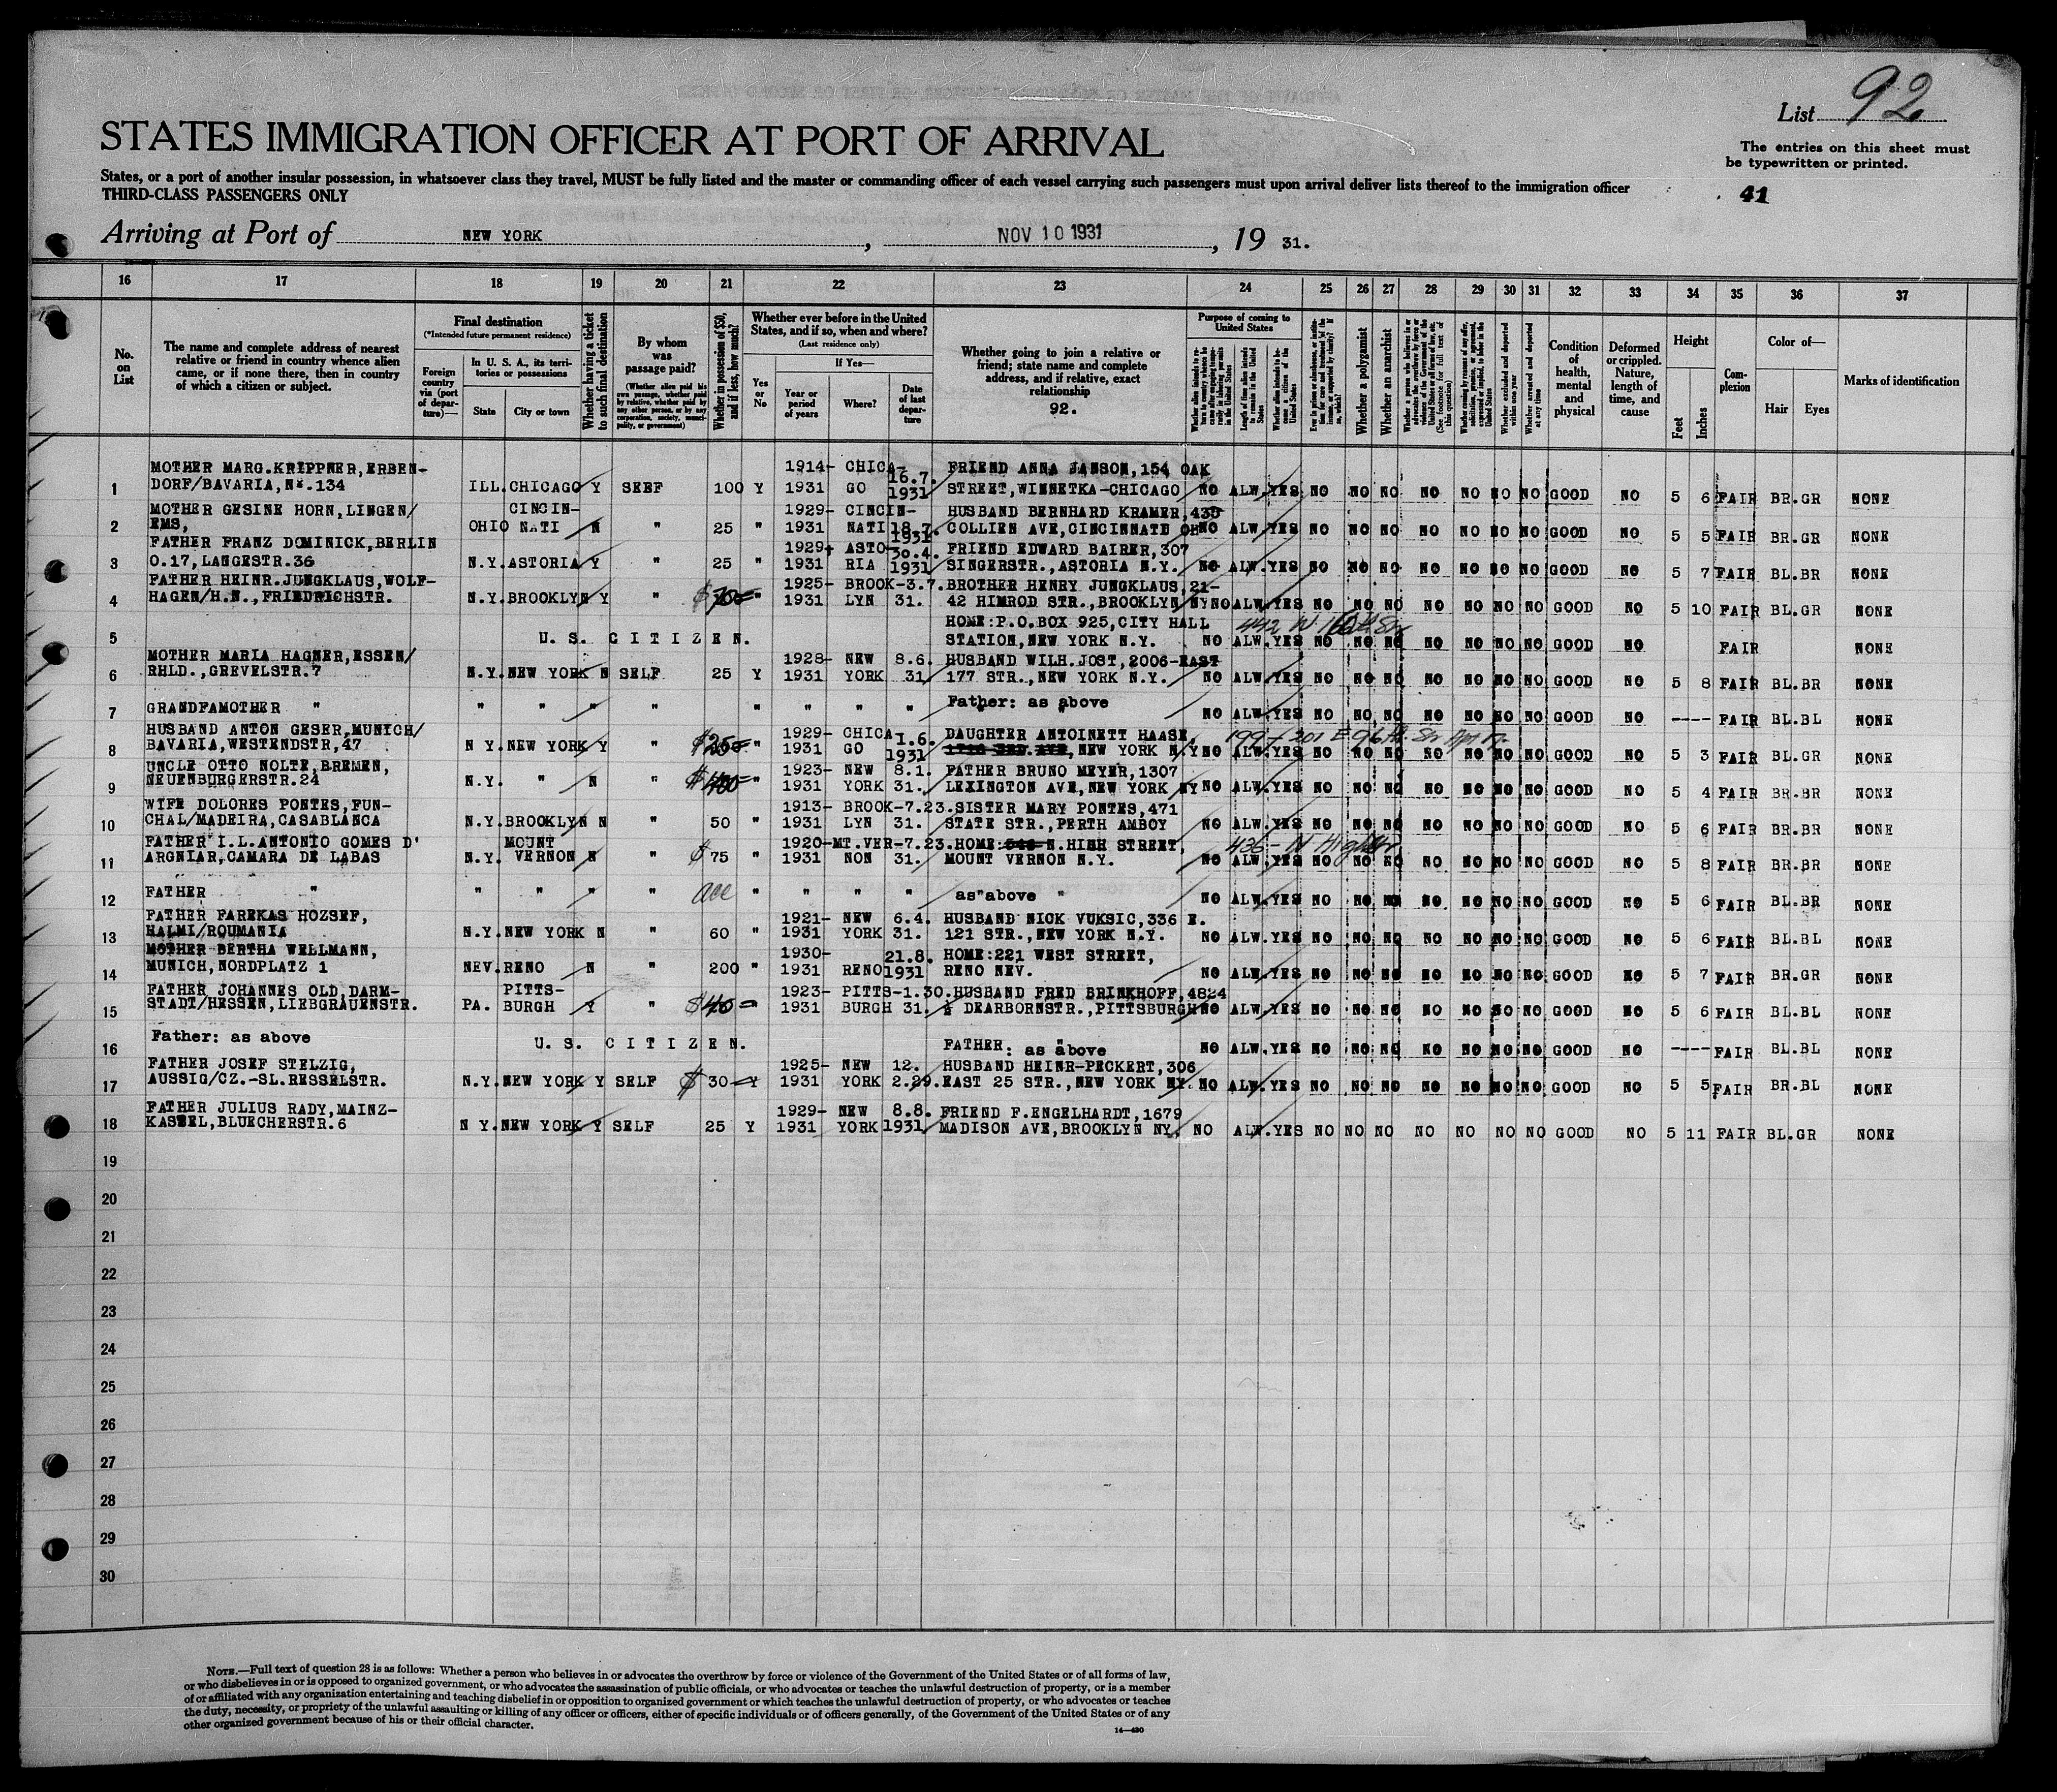 List 92
STATES IMMIGRATION OFFICER AT PORT OF ARRIVAL
The entries on this sheet must
be typewritten or printed.
States, or a port of another insular possession, in whatsoever class they travel, MUST be fully listed and the master or commanding officer of each vessel carrying such passengers must upon arrival deliver lists thereof to the immigration officer
THIRD-CLASS PASSENGERS ONLY
41
Arriving at Port of NEW YORK, NOV 10 1931, 19 31.
16 17 18 19 20 21 22 23 24 25 26 27 28 29 30 31 32 33 34 35 36 37
No. on List
The name and complete address of nearest
relative or friend in country whence alien
came, or if none there, then in country
of which a citizen or subject.
Final destination
(*Intended future permanent residence)
Foreign country via (port of departure)—
In U. S. A., its territories or possessions
State City or town
Whether having a ticket to such final destination
By whom was passage paid?
(Whether alien paid his own passage, whether paid by relative, whether paid by any other person, or by any corporation, society, municipality, or government)
Whether in possession of $50, and if less, how much?
Whether ever before in the United States, and if so, when and where?
(Last residence only)
Yes or No
If Yes—
Year or period of years
Where?
Date of last departure
Whether going to join a relative or
friend; state name and complete
address, and if relative, exact
relationship
92.
Purpose of coming to United States
Length of time alien intends to remain in the United States
Whether alien intends to become a citizen of the United States
Whether a polygamist
Whether an anarchist
Whether excluded and deported within one year
Whether arrested and deported at any time
Condition of health, mental and physical
Deformed or crippled. Nature, length of time, and cause
Height
Feet Inches
Complexion
Color of—
Hair Eyes
Marks of identification
MOTHER MARG.KRIPPNER,ERBEN- 1914- CHICA- 16.7. FRIEND ANNA JANSON,154 OAK
1 DORF/BAVARIA,N*.134 ILL.CHICAGO Y SEBF 100 Y 1931 GO 1931 STREET,WINNETKA-CHICAGO NO ALW.YES NO NO NO NO NO NO NO GOOD NO 5 6 FAIR BR.GR NONE
MOTHER GESINE HORN,LINGEN/ CINCIN- 1929- CINCIN- HUSBAND BERNHARD KRAMER,435
2 EMS, OHIO NATI N " 25 " 1931 NATI 18.7. 1931 COLLIEN AVE,CINCINNATI OH NO ALW.YES NO NO NO NO NO NO NO GOOD NO 5 5 FAIR BR.GR NONE
FATHER FRANZ DOMINICK,BERLIN 1929- ASTO- 30.4. FRIEND EDWARD BAIRER,307
3 O.17,LANGESTR.36 N.Y.ASTORIA Y " 25 " 1931 RIA 1931 SINGERSTR.,ASTORIA N.Y. NO ALW.YES NO NO NO NO NO NO NO GOOD NO 5 7 FAIR BL.BR NONE
FATHER HEINR.JUNGKLAUS,WOLF- 1925- BROOK- 3.7. BROTHER HENRY JUNGKLAUS,21-
4 HAGEN/H.N.,FRIEDRICHSTR. N.Y.BROOKLYN Y " $70 " 1931 LYN 31. 42 HIMROD STR.,BROOKLYN NY NO ALW.YES NO NO NO NO NO NO NO GOOD NO 5 10 FAIR BL.GR NONE
HOME:P.O.BOX 925,CITY HALL 442 W
5 U. S. C I T I Z E N. STATION,NEW YORK N.Y. NO ALW.YES NO NO NO NO NO NO NO GOOD NO FAIR NONE
MOTHER MARIA HAGNER,ESSEN/ 1928- NEW 8.6. HUSBAND WILH.JOST,2006-EAST
6 RHLD.,GREVELSTR.7 N.Y.NEW YORK N SELF 25 Y 1931 YORK 31 177 STR.,NEW YORK N.Y. NO ALW.YES NO NO NO NO NO NO NO GOOD NO 5 8 FAIR BL.BR NONE
7 GRANDFAMOTHER " " " " " " " " " Father: as above NO ALW.YES NO NO NO NO NO NO NO GOOD NO ---- FAIR BL.BL NONE
HUSBAND ANTON GESER,MUNICH/ 1929- CHICA 1.6. DAUGHTER ANTOINETT HAASE, 199-201 E 96th St Apt
8 BAVARIA,WESTENDSTR,47 N Y.NEW YORK Y " $25 " 1931 GO 1931 3RD.AVE,NEW YORK N/Y NO ALW.YES NO NO NO NO NO NO NO GOOD NO 5 3 FAIR BL.GR NONE
UNCLE OTTO NOLTE,BREMEN, 1923- NEW 8.1. FATHER BRUNO MEYER,1307
9 NEUENBURGERSTR.24 N.Y. " N " $400 " 1931 YORK 31. LEXINGTON AVE,NEW YORK NY NO ALW.YES NO NO NO NO NO NO NO GOOD NO 5 4 FAIR BR.BR NONE
WIFE DOLORES PONTES,FUN- 1913- BROOK-7.23. SISTER MARY PONTES,471
10 CHAL/MADEIRA,CASABLANCA N.Y.BROOKLYN N " 50 " 1931 LYN 31. STATE STR.,PERTH AMBOY NO ALW.YES NO NO NO NO NO NO NO GOOD NO 5 6 FAIR BR.BR NONE
FATHER I.L.ANTONIO GOMES D' MOUNT 1920-MT.VER-7.23. HOME: N.HIGH STREET, 436- N High St
11 ARGNIAR,CAMARA DE LABAS N.Y. VERNON N " $75 " 1931 NON 31. MOUNT VERNON N.Y. NO ALW.YES NO NO NO NO NO NO NO GOOD NO 5 8 FAIR BR.BR NONE
12 FATHER " " " " " acc " " " " as above " NO ALW.YES NO NO NO NO NO NO NO GOOD NO 5 6 FAIR BL.BR NONE
FATHER FAREKAS HOZSEF, 1921- NEW 6.4. HUSBAND NICK VUKSIC,336 E.
13 HALMI/ROUMANIA N.Y.NEW YORK N " 60 " 1931 YORK 31. 121 STR.,NEW YORK N.Y. NO ALW.YES NO NO NO NO NO NO NO GOOD NO 5 6 FAIR BL.BL NONE
MOTHER BERTHA WELLMANN, 1930- 21.8. HOME:221 WEST STREET,
14 MUNICH,NORDPLATZ 1 NEV.RENO N " 200 " 1931 RENO 1931 RENO NEV. NO ALW.YES NO NO NO NO NO NO NO GOOD NO 5 7 FAIR BR.GR NONE
FATHER JOHANNES OLD,DARM- PITTS- 1923- PITTS-1.30. HUSBAND FRED BRINKHOFF,4824
15 STADT/HESSEN,LIEBGRAUENSTR. PA. BURGH Y " $40 " 1931 BURGH 31. ½ DEARBORNSTR.,PITTSBURGH NO ALW.YES NO NO NO NO NO NO NO GOOD NO 5 6 FAIR BL.BL NONE
16 Father: as above U. S. C I T I Z E N. FATHER: as above NO ALW.YES NO NO NO NO NO NO NO GOOD NO ---- FAIR BL.BL NONE
FATHER JOSEF STELZIG, 1925- NEW 12. HUSBAND HEINR-PECKERT,306
17 AUSSIG/CZ.-SL.RESSELSTR. N.Y.NEW YORK Y SELF $30 Y 1931 YORK 2.29. EAST 25 STR.,NEW YORK NY. NO ALW.YES NO NO NO NO NO NO NO GOOD NO 5 5 FAIR BR.BL NONE
FATHER JULIUS RADY,MAINZ- 1929- NEW 8.8. FRIEND F.ENGELHARDT,1679
18 KASTEL,BLUECHERSTR.6 N Y.NEW YORK Y SELF 25 Y 1931 YORK 1931 MADISON AVE,BROOKLYN NY, NO ALW.YES NO NO NO NO NO NO NO GOOD NO 5 11 FAIR BL.GR NONE
19
20
21
22
23
24
25
26
27
28
29
30
NOTE.—Full text of question 28 is as follows: Whether a person who believes in or advocates the overthrow by force or violence of the Government of the United States or of all forms of law,
or who disbelieves in or is opposed to organized government, or who advocates the assassination of public officials, or who advocates or teaches the unlawful destruction of property, or is a member
of or affiliated with any organization entertaining and teaching disbelief in or opposition to organized government or which teaches the unlawful destruction of property, or who advocates or teaches
the duty, necessity, or propriety of the unlawful assaulting or killing of any officer or officers, either of specific individuals or of officers generally, of the Government of the United States or of any
other organized government because of his or their official character.
14—430